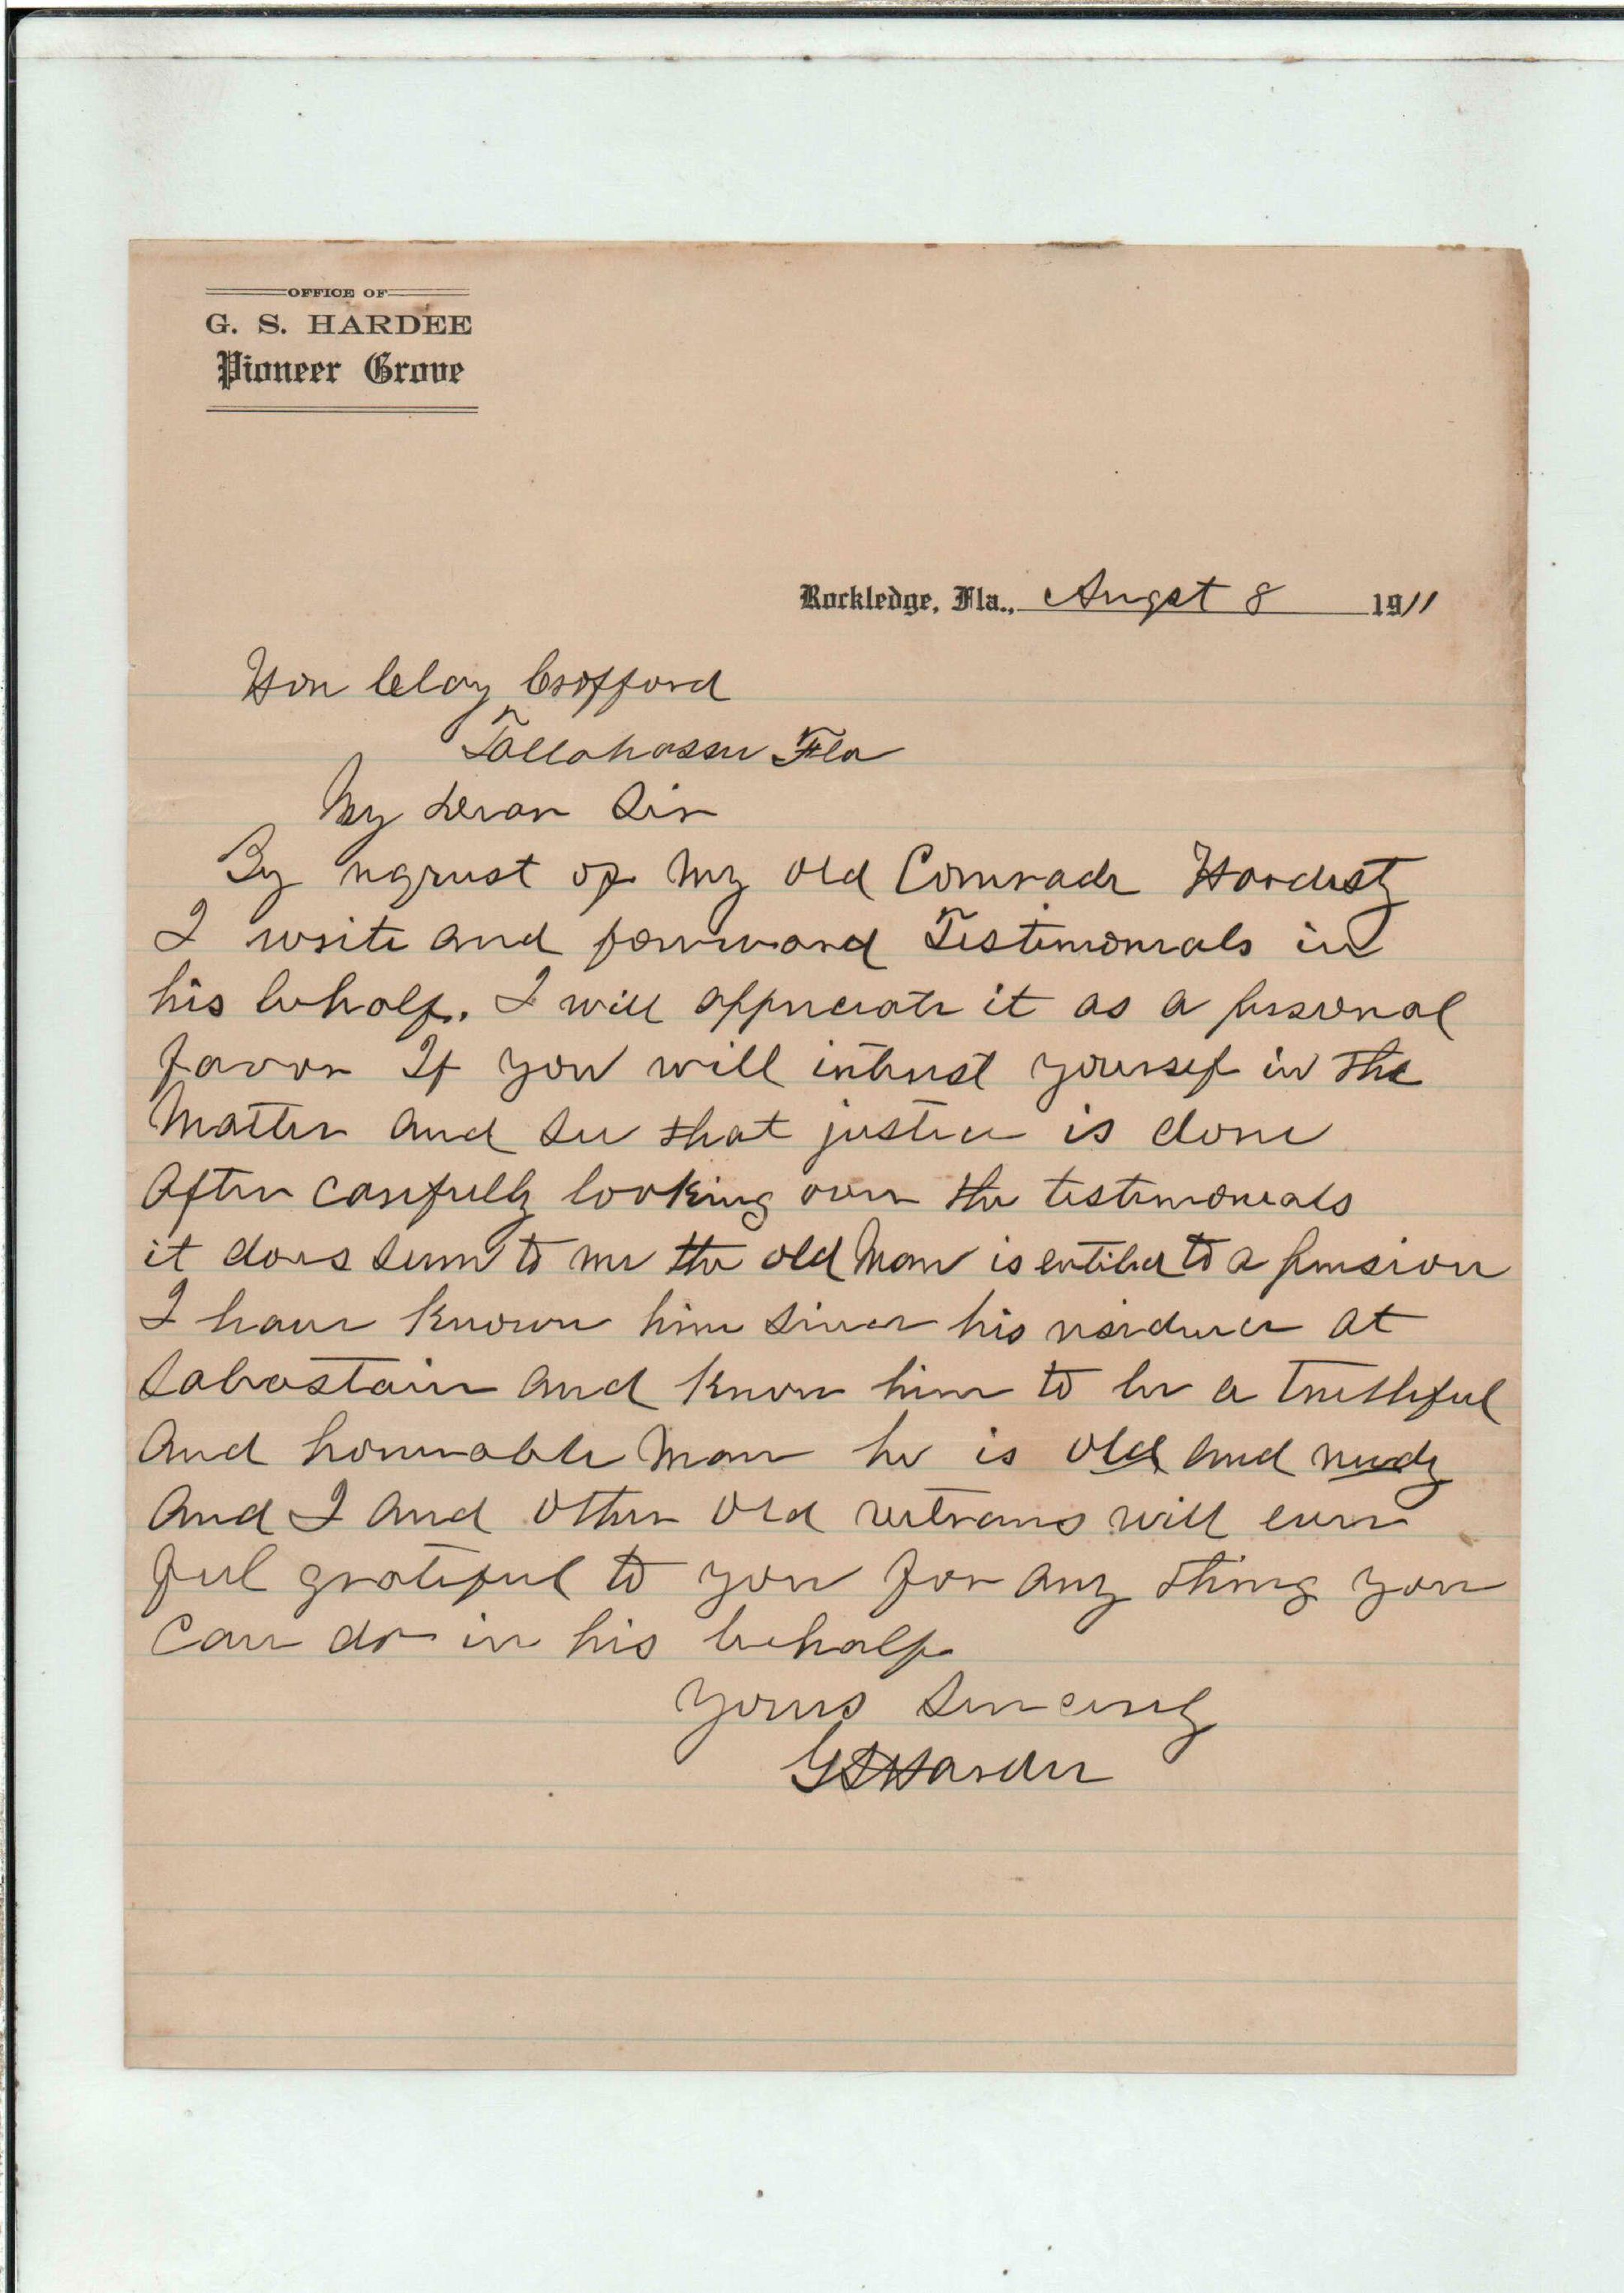 OFFICE OF
G. S. HARDEE
Pioneer Grove
Rockledge, Fla., Augst 8 1911
Hon Clay Crofford
Tallahassee Fla
My dear Sir
By request of my old Comrade Hardesty
I write and forward Testimonials in
his behalf. I will appreciate it as a personal
favor If you will interest yoursef in the
Matter and see that justice is done
After carefully looking over the testimonials
it does seem to me the old Man is entiled to a pension
I have known him since his residence at
Sabastain and know him to be a truthful
And honorable Man he is old and needy
And I and other old veterans will ever
feel grateful to you for any thing you
Can do in his behalf
yours Sincerely
GSHardee